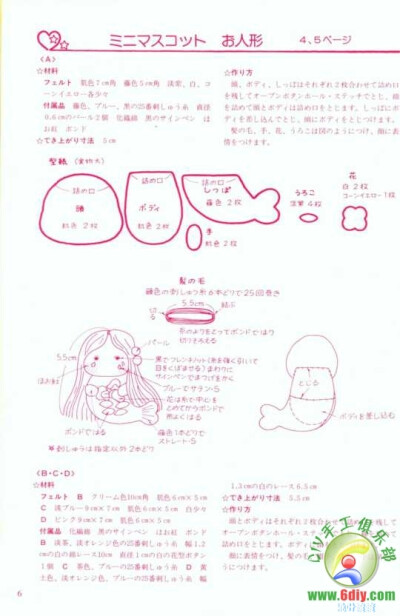 ミニマスコット　お人形
4、5ページ
〈A〉
☆材料
フェルト　肌色7cm角　藤色5cm角　淡茶、白、コ
ーンイエロー各少々
付属品　藤色、ブルー、黒の25番刺しゅう糸　直径
0.6cmのパール2個　化繊綿　黒のサインペン　ほ
お紅　ボンド
☆でき上がり寸法　5.5cm
☆作り方
頭、ボディ、しっぽはそれぞれ2枚合わせて詰め口
を残してオープンボタンホール・ステッチでとじ、綿
を詰めて頭とボディは詰め口をとじます。しっぽにボ
ディを差し込んでとじ、頭にボディをとじつけます。
髪の毛、手、花、うろこは図のようにつけ、顔に表
情をつけます。
型紙（実物大）
詰め口
頭
肌色 2枚
詰め口
ボディ
肌色 2枚
詰め口
しっぽ
藤色 2枚
手
肌色 2枚
うろこ
淡茶 4枚
花
白 2枚
コーンイエロー 1枚
髪の毛
藤色の刺しゅう糸6本どりで25回巻き
5.5cm
切る
結ぶ
パール
5.5cm
ほお紅
黒でフレンチノット（糸を強く引いて
目をくぼませる）まわりに
サインペンでまつげをかく
ブルーでサテンS
花は糸で中心を
とめてからボンドで
ボンドではる
藤色1本どりで
ストレートS
＊刺しゅうは指定以外2本どり
とじる
ボディを差し込む
〈B・C・D〉
☆材料
フェルト　B　クリーム色10cm角　肌色6cm×5cm
C　淡ブルー9cm×7cm　肌色6cm×5cm　白少々
D　ピンク9cm×7cm　肌色6cm×5cm
付属品　化繊綿　黒のサインペン　ほお紅　ボンド
B　淡茶、淡オレンジ色の25番刺しゅう糸　幅1.2
cmの白の綿レース10cm　直径1cmの白の花型ボタン
1個　C　茶色、ブルーの25番刺しゅう糸　D　黄
土色、淡オレンジ色、ブルーの25番刺しゅう糸　幅
1.3cmの白のレース6.5cm
☆でき上がり寸法　5.5cm
☆作り方
頭とボディはそれぞれ2枚合わせて詰め
6
DIY手工俱乐部
www.6diy.com